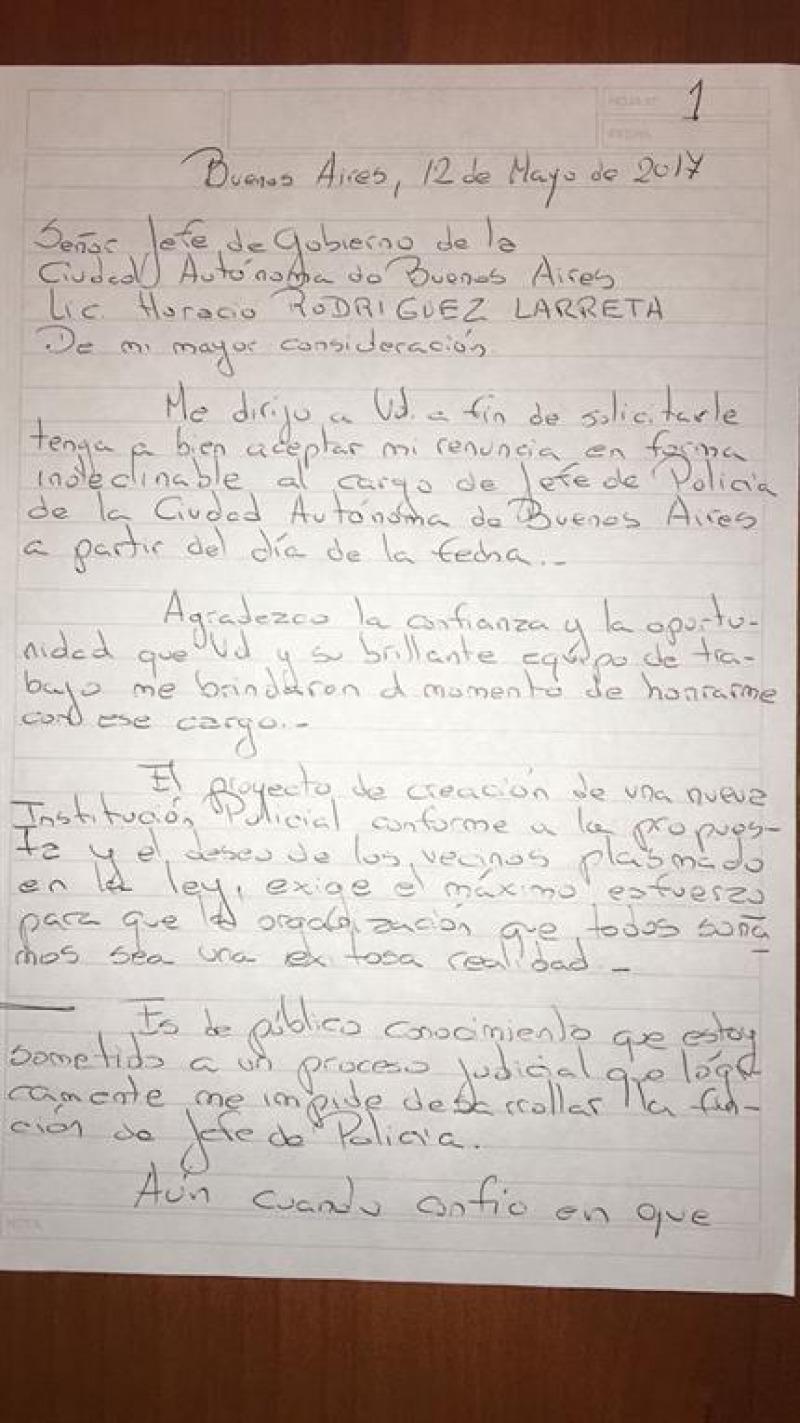 HOJA Nº 1
FECHA
Buenos Aires, 12 de Mayo de 2017
Señor Jefe de Gobierno de la
Ciudad Autónoma de Buenos Aires
Lic. Horacio RODRIGUEZ LARRETA
De mi mayor consideración
Me dirijo a Ud. a fin de solicitarle
tenga a bien aceptar mi renuncia en forma
indeclinable al cargo de Jefe de Policía
de la Ciudad Autónoma de Buenos Aires
a partir del día de la fecha.-
Agradezco la confianza y la oportu-
nidad que Ud y su brillante equipo de tra-
bajo me brindaron al momento de honrarme
con ese cargo.-
El proyecto de creación de una nueva
Institución Policial conforme a la propues-
ta y el deseo de los vecinos plasmado
en la ley, exige el máximo esfuerzo
para que la organización que todos soña
mos sea una exitosa realidad -
Es de público conocimiento que estoy
sometido a un proceso judicial que lógi
camente me impide desarrollar la fun-
ción de Jefe de Policía.
Aún cuando confio en que
NOTA